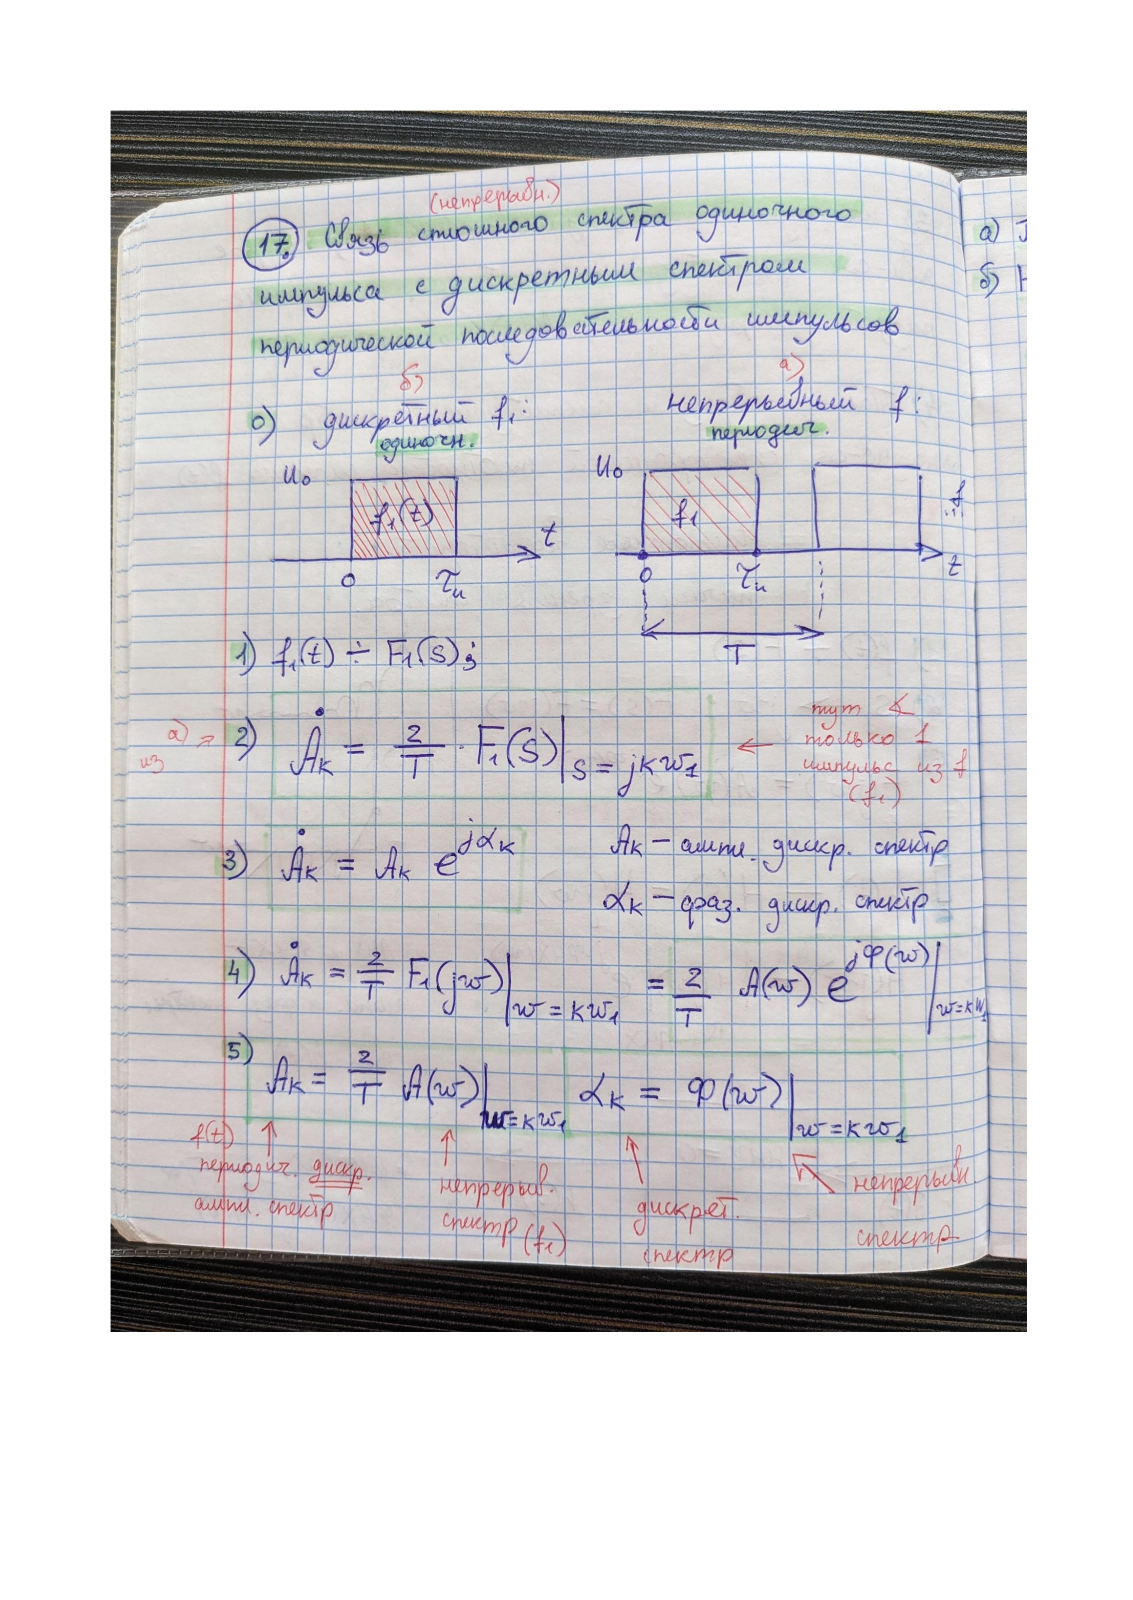 (непрерывн.)
17. Связь сплошного спектра одиночного
импульса с дискретным спектром
периодической последовательности импульсов
б) а)
0) дискретный f₁: непрерывный f:
одиночн. периодич.
U₀ U₀
f₁(t) f₁ f
t t
0 τᵤ 0 τᵤ
T
1) f₁(t) ÷ F₁(S);
из а) ⇒ 2) Ȧₖ = 2/T · F₁(S)|S = jkω₁ ←
тут ∡
только 1
импульс из f
(f₁)
3) Ȧₖ = Aₖ e^jαₖ Aₖ – ампл. дискр. спектр
αₖ – фаз. дискр. спектр
4) Ȧₖ = 2/T F₁(jω)|ω = kω₁ = 2/T A(ω) e^jΦ(ω)|ω=kω₁
5) Aₖ = 2/T A(ω)|ω=kω₁ αₖ = Φ(ω)|ω=kω₁
f(t)
периодич. дискр.
ампл. спектр
непрерыв.
спектр (f₁)
дискрет.
спектр
непрерывн
спектр
а)
б)